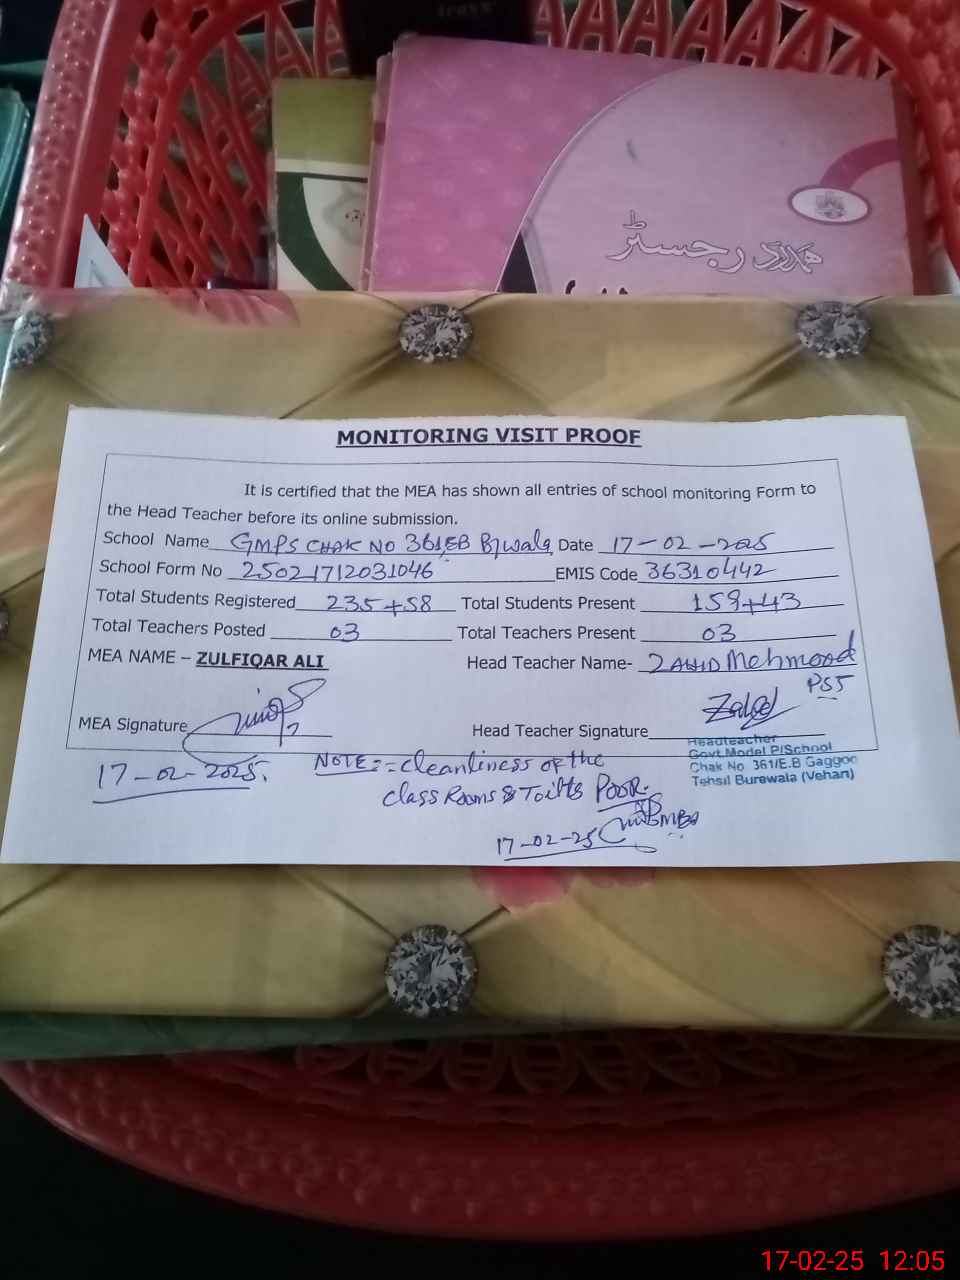 ہمدرد رجسٹر
MONITORING VISIT PROOF
It is certified that the MEA has shown all entries of school monitoring Form to
the Head Teacher before its online submission.
School Name GMPS CHAK NO 361/EB Bjwala Date 17-02-2025
School Form No 25021712031046 EMIS Code 36310442
Total Students Registered 235+58 Total Students Present 159+43
Total Teachers Posted 03 Total Teachers Present 03
MEA NAME – ZULFIQAR ALI Head Teacher Name- ZAHID Mehmood
PST
MEA Signature Head Teacher Signature
Headteacher
Govt.Model P/School
Chak No. 361/E.B Gaggoo
Tehsil Burewala (Vehari)
17-02-2025.
NOTE:- cleanliness of the
class Rooms & Toilets POOR.
17-02-25
17-02-25 12:05